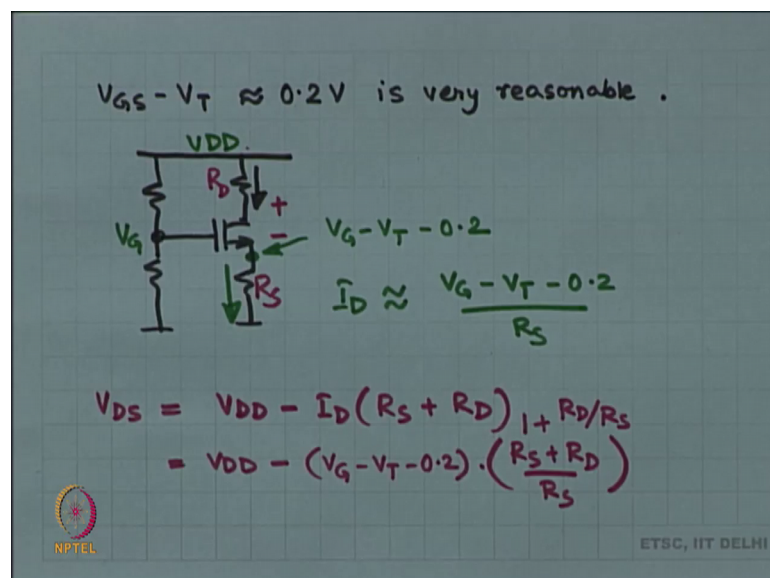 V_GS - V_T ≈ 0.2V is very reasonable .
VDD
R_D
+
-
V_G
V_G - V_T - 0.2
R_S
I_D ≈ (V_G - V_T - 0.2) / R_S
V_DS = VDD - I_D (R_S + R_D)
1 + R_D/R_S
= VDD - (V_G - V_T - 0.2) · ((R_S + R_D) / R_S)
NPTEL
ETSC, IIT DELHI